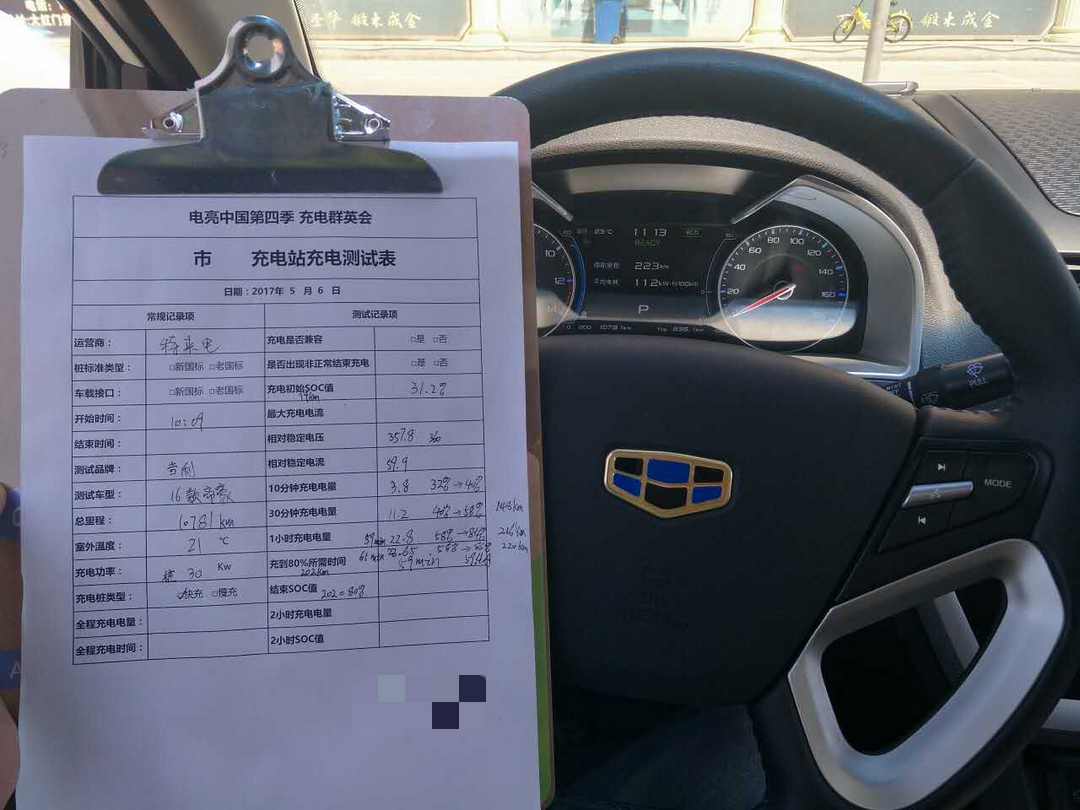 煅末成金
煅末成金
电亮中国第四季 充电群英会
市 充电站充电测试表
日期：2017年 5 月 6 日
常规记录项 测试记录项
运营商： 特来电 充电是否兼容 □是 □否
桩标准类型： □新国标 □老国标 是否出现非正常结束充电 □是 □否
车载接口： □新国标 □老国标 充电初始SOC值 31.2%
开始时间： 10:09 最大充电电流
结束时间： 相对稳定电压 357.8 360
测试品牌： 吉利 相对稳定电流 59.9
测试车型： 16款帝豪 10分钟充电电量 3.8 32%→40%
总里程： 10781 km 30分钟充电电量 11.2 40%→58% 148km
室外温度： 21 ℃ 1小时充电电量 59min 22.8 58%→86% 216km
充电功率： 30 Kw 充到80%所需时间 59min
220km
202km
充电桩类型： ✓快充 □慢充 结束SOC值 202=80%
全程充电电量： 2小时充电电量
全程充电时间： 2小时SOC值
23℃ 11:13 ECO
READY
223km
P
20 40 60 80 100 120 140 160
12
PULL
MODE